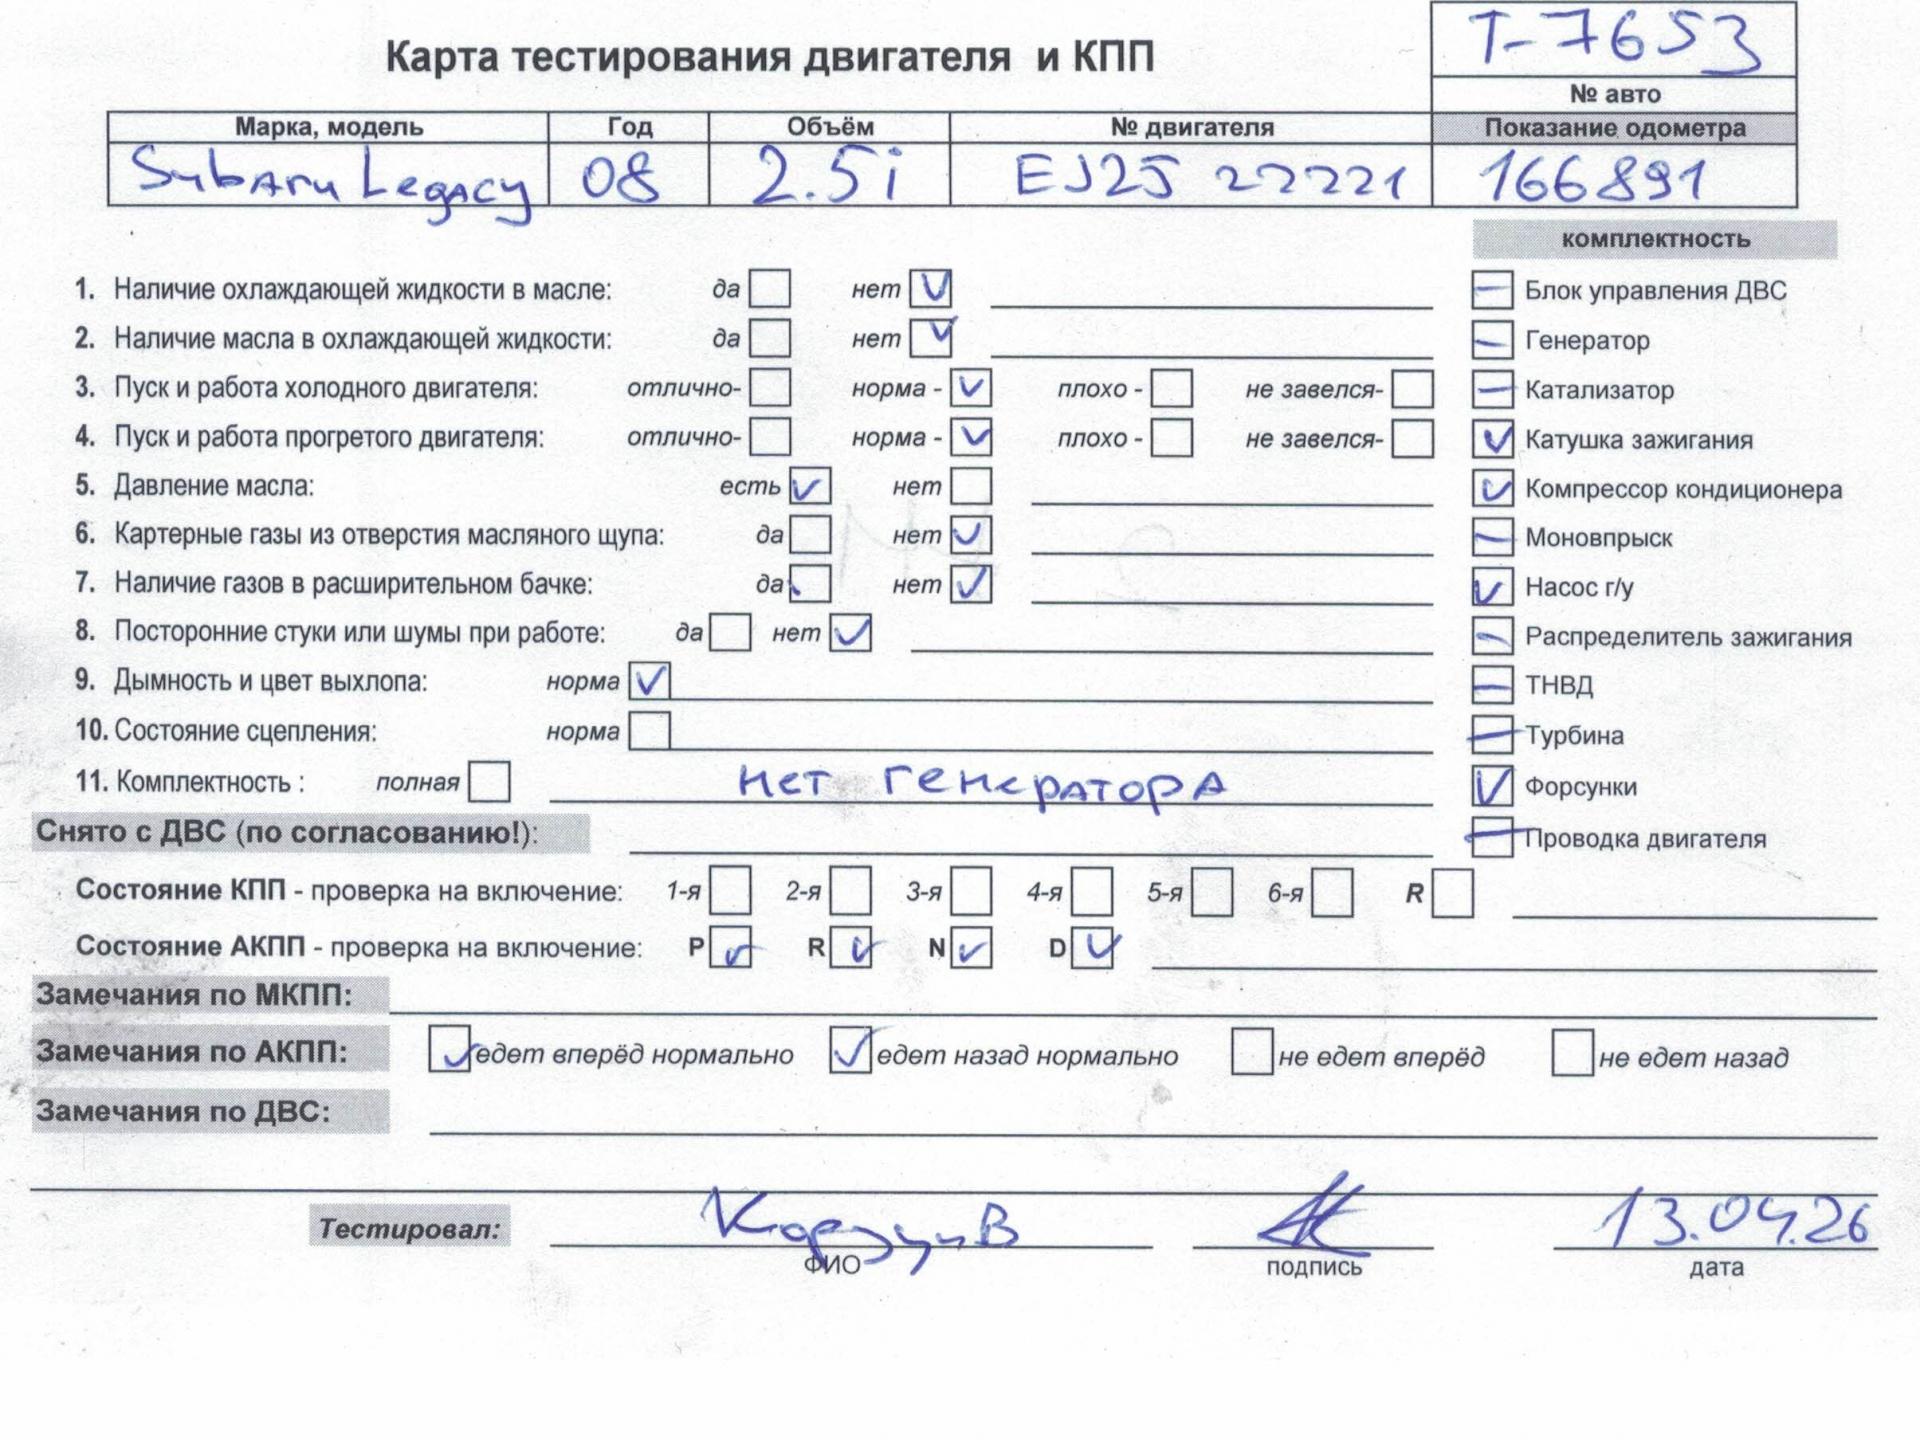 Т-7653
Карта тестирования двигателя и КПП
№ авто
Марка, модель Год Объём № двигателя Показание одометра
Subaru Legacy 08 2.5i EJ25 22221 166891
комплектность
1. Наличие охлаждающей жидкости в масле: да нет Блок управления ДВС
2. Наличие масла в охлаждающей жидкости: да нет Генератор
3. Пуск и работа холодного двигателя: отлично- норма - плохо - не завелся- Катализатор
4. Пуск и работа прогретого двигателя: отлично- норма - плохо - не завелся- Катушка зажигания
5. Давление масла: есть нет Компрессор кондиционера
6. Картерные газы из отверстия масляного щупа: да нет Моновпрыск
7. Наличие газов в расширительном бачке: да нет Насос г/у
8. Посторонние стуки или шумы при работе: да нет Распределитель зажигания
9. Дымность и цвет выхлопа: норма ТНВД
10. Состояние сцепления: норма Турбина
11. Комплектность : полная нет генератора Форсунки
Снято с ДВС (по согласованию!): Проводка двигателя
Состояние КПП - проверка на включение: 1-я 2-я 3-я 4-я 5-я 6-я R
Состояние АКПП - проверка на включение: P R N D
Замечания по МКПП:
Замечания по АКПП: едет вперёд нормально едет назад нормально не едет вперёд не едет назад
Замечания по ДВС:
Тестировал: 13.04.26
ФИО подпись дата